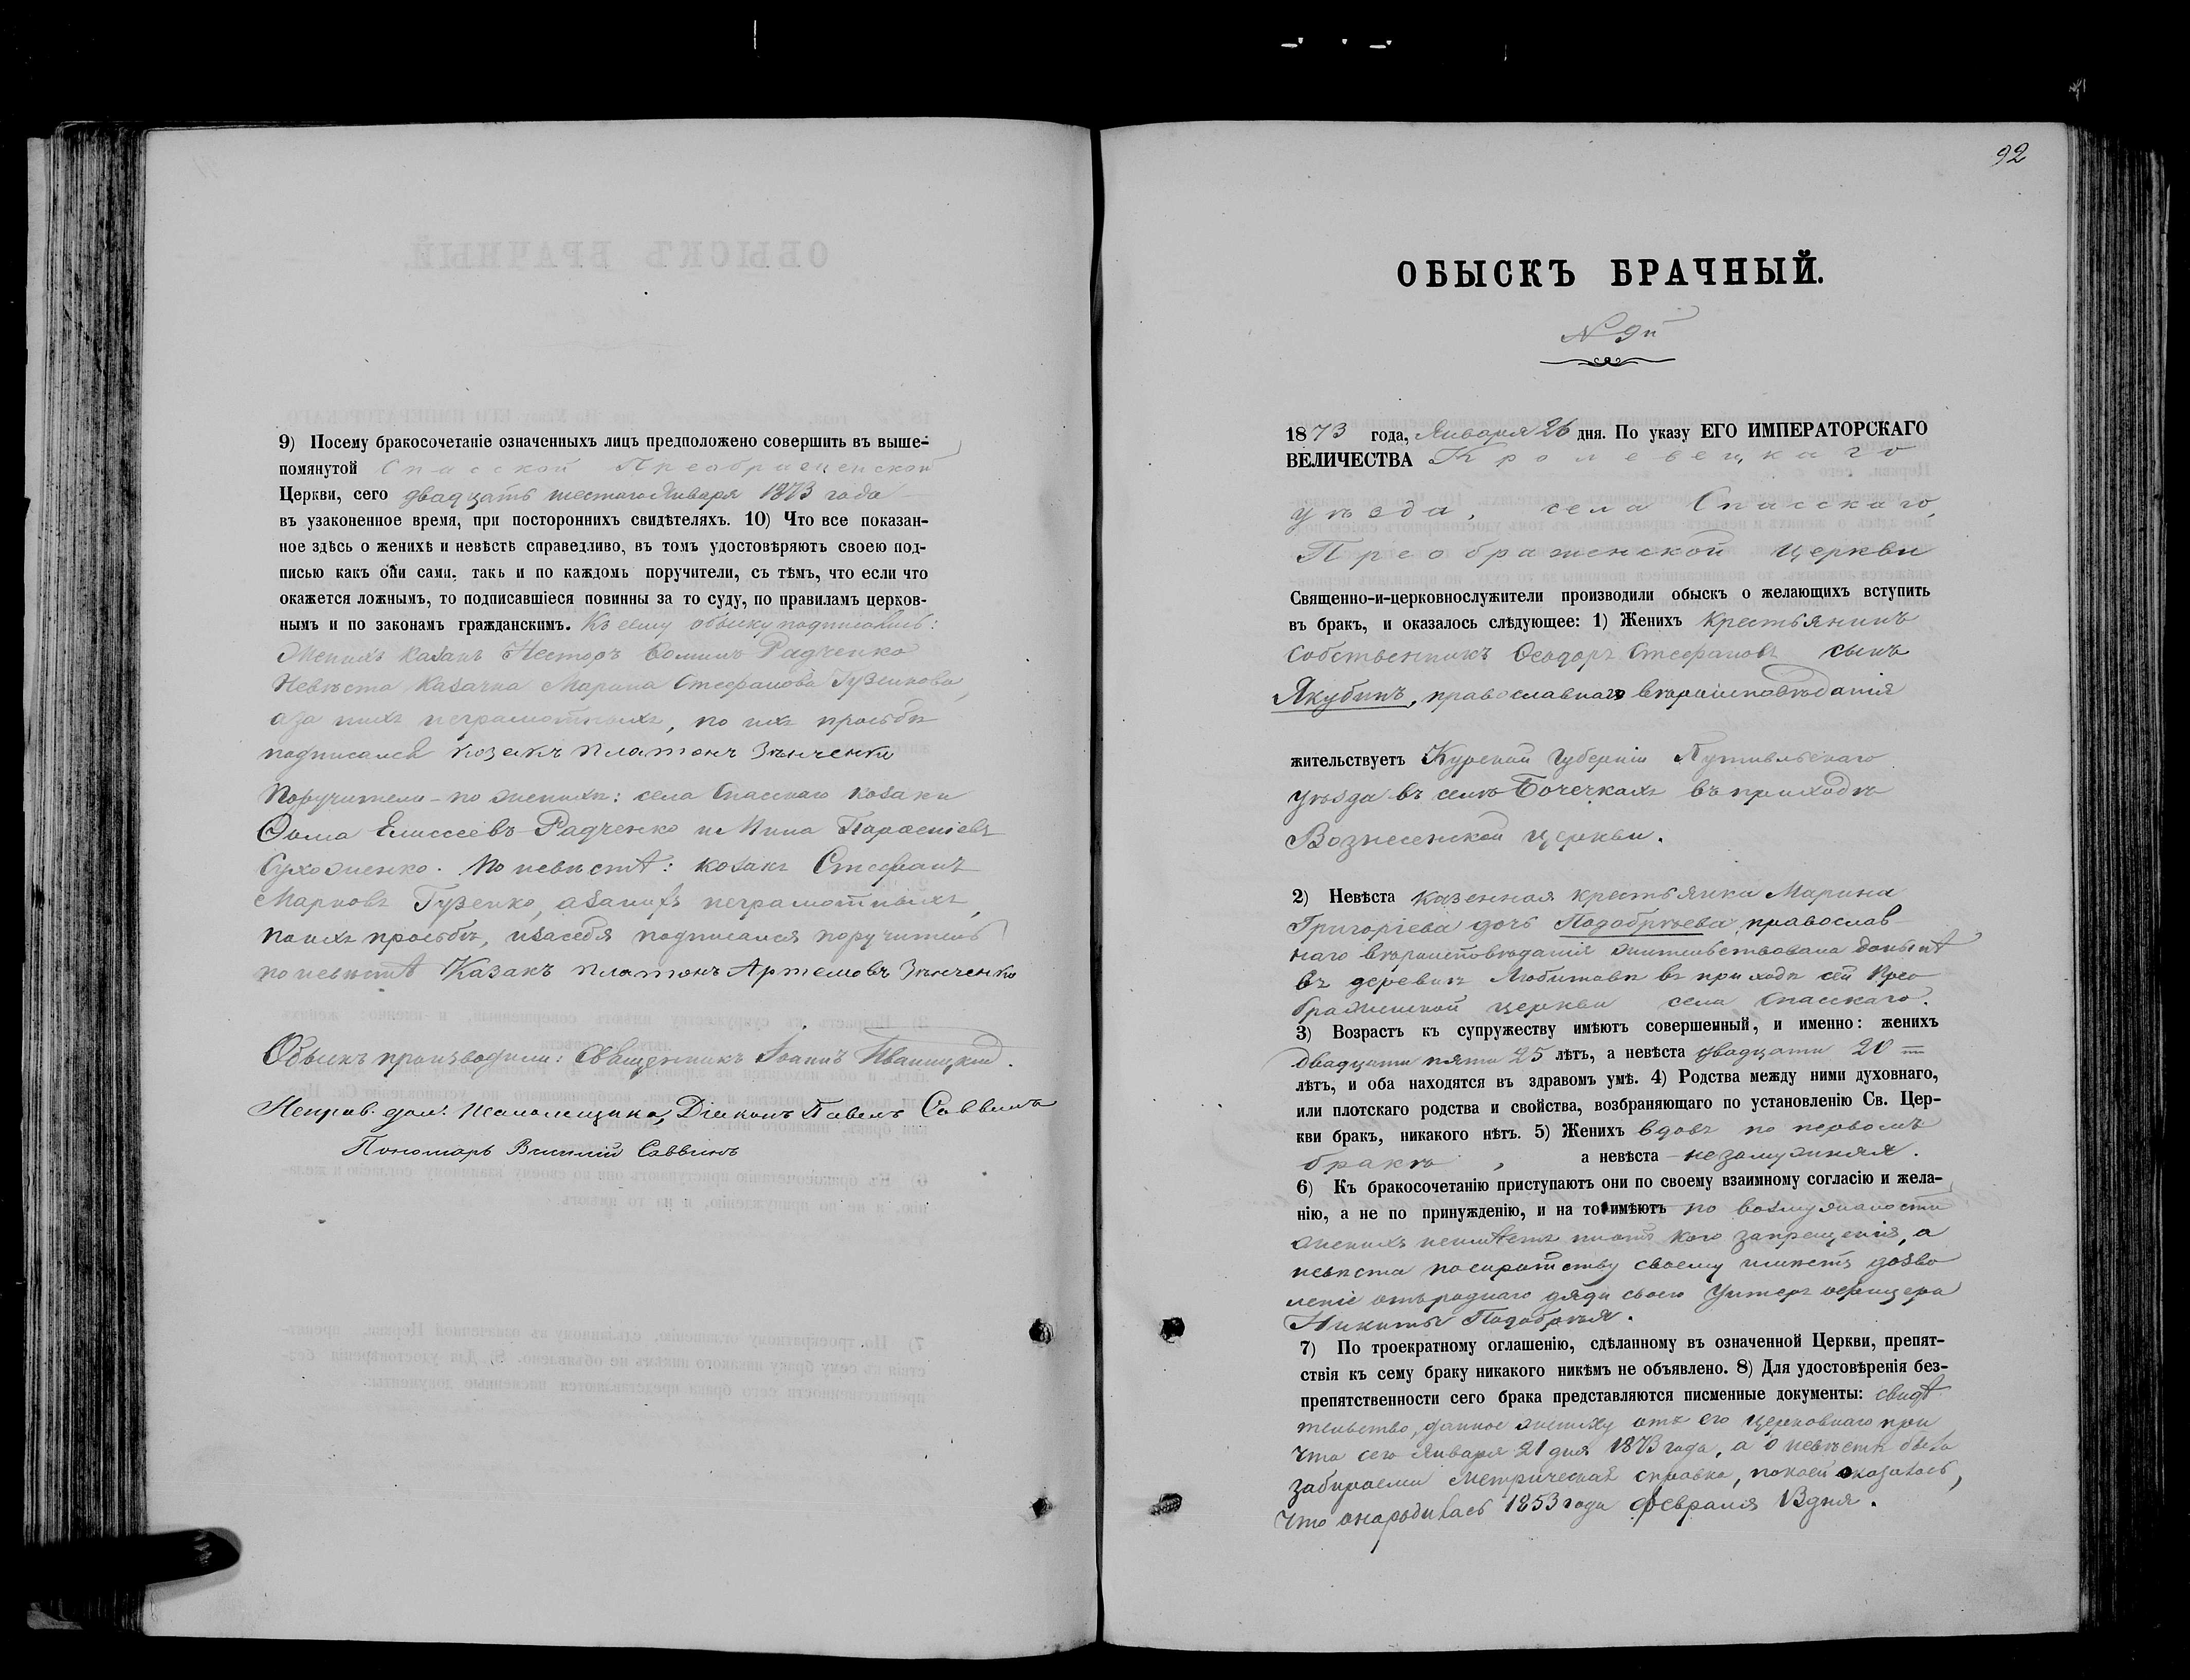 9) Посему бракосочетаніе означенныхъ лицъ предположено совершить въ выше-
помянутой Спасской Преображенской
Церкви, сего двадцать шестаго Января 1873 года
въ узаконенное время, при постороннихъ свидѣтеляхъ. 10) Что все показан-
ное здѣсь о женихѣ и невѣстѣ справедливо, въ томъ удостовѣряютъ своею под-
писью какъ они сами, такъ и по каждомъ поручители, съ тѣмъ, что если что
окажется ложнымъ, то подписавшіеся повинны за то суду, по правиламъ церков-
нымъ и по законамъ гражданскимъ. Къ сему обыску подписались:
Женихъ казакъ Несторъ Ѳоминъ Радченко
Невѣста казачка Марина Стефанова Гузенкова,
а за нихъ неграмотныхъ, по ихъ просьбѣ
подписался козакъ Платонъ Зѣнченко
Поручители - по женихѣ: села Спасскаго козаки
Ѳома Елиссеевъ Радченко и Мина Парѳеніевъ
Сухоженко. По невѣстѣ: козакъ Стефанъ
Марковъ Гузенко, а за нихъ неграмотныхъ,
по ихъ просьбѣ, и за себя подписался поручитель
по невѣстѣ Казакъ Платонъ Артемовъ Зѣнченко
Обыскъ производили: Священникъ Іоаннъ Иваницкій.
Исправ. долж. Псаломщика, Діаконъ Павелъ Саввинъ
Пономарь Василій Саввинъ
92
ОБЫСКЪ БРАЧНЫЙ.
N 9й
1873 года, Января 26 дня. По указу ЕГО ИМПЕРАТОРСКАГО
ВЕЛИЧЕСТВА Кролевецкаго
уѣзда, села Спасскаго,
Преображенской церкви
Священно-и-церковнослужители производили обыскъ о желающихъ вступить
въ бракъ, и оказалось слѣдующее: 1) Женихъ крестьянинъ
собственникъ Ѳеодоръ Стефановъ сынъ
Якубинъ, православнаго вѣроисповѣданія
жительствуетъ Курской Губерніи Путивльскаго
уѣзда въ селѣ Бочечкахъ въ приходѣ
Вознесенской церкви.
2) Невѣста казенная крестьянка Марина
Григоріева дочь Подобрѣева, православ
наго вѣроисповѣданія жительствовала донынѣ
въ деревнѣ Любитовѣ въ приходѣ сей Прео
браженской церкви села Спасскаго.
3) Возрастъ къ супружеству имѣютъ совершенный, и именно: женихъ
двадцати пяти 25 лѣтъ, а невѣста двадцати 20
лѣтъ, и оба находятся въ здравомъ умѣ. 4) Родства между ними духовнаго,
или плотскаго родства и свойства, возбраняющаго по установленію Св. Цер-
кви бракъ, никакого нѣтъ. 5) Женихъ вдовъ по первомъ
бракѣ, а невѣста незамужняя.
6) Къ бракосочетанію приступаютъ они по своему взаимному согласію и жела-
нію, а не по принужденію, и на то имѣютъ по возмужалости
женихъ неимѣетъ ни отъ кого запрещенія, а
невѣста по сиротству своему имѣетъ дозво
леніе отъ роднаго дяди своего Унтеръ офицера
Никиты Подобрѣя.
7) По троекратному оглашенію, сдѣланному въ означенной Церкви, препят-
ствія къ сему браку никакого никѣмъ не объявлено. 8) Для удостовѣренія без-
препятственности сего брака представляются писменные документы: свидѣ
тельство, данное жениху отъ его церковнаго при
чта сего Января 21 дня 1873 года, а о невѣстѣ была
забираема метрическая справка, по коей оказалось,
что она родилась 1853 года февраля 13 дня.